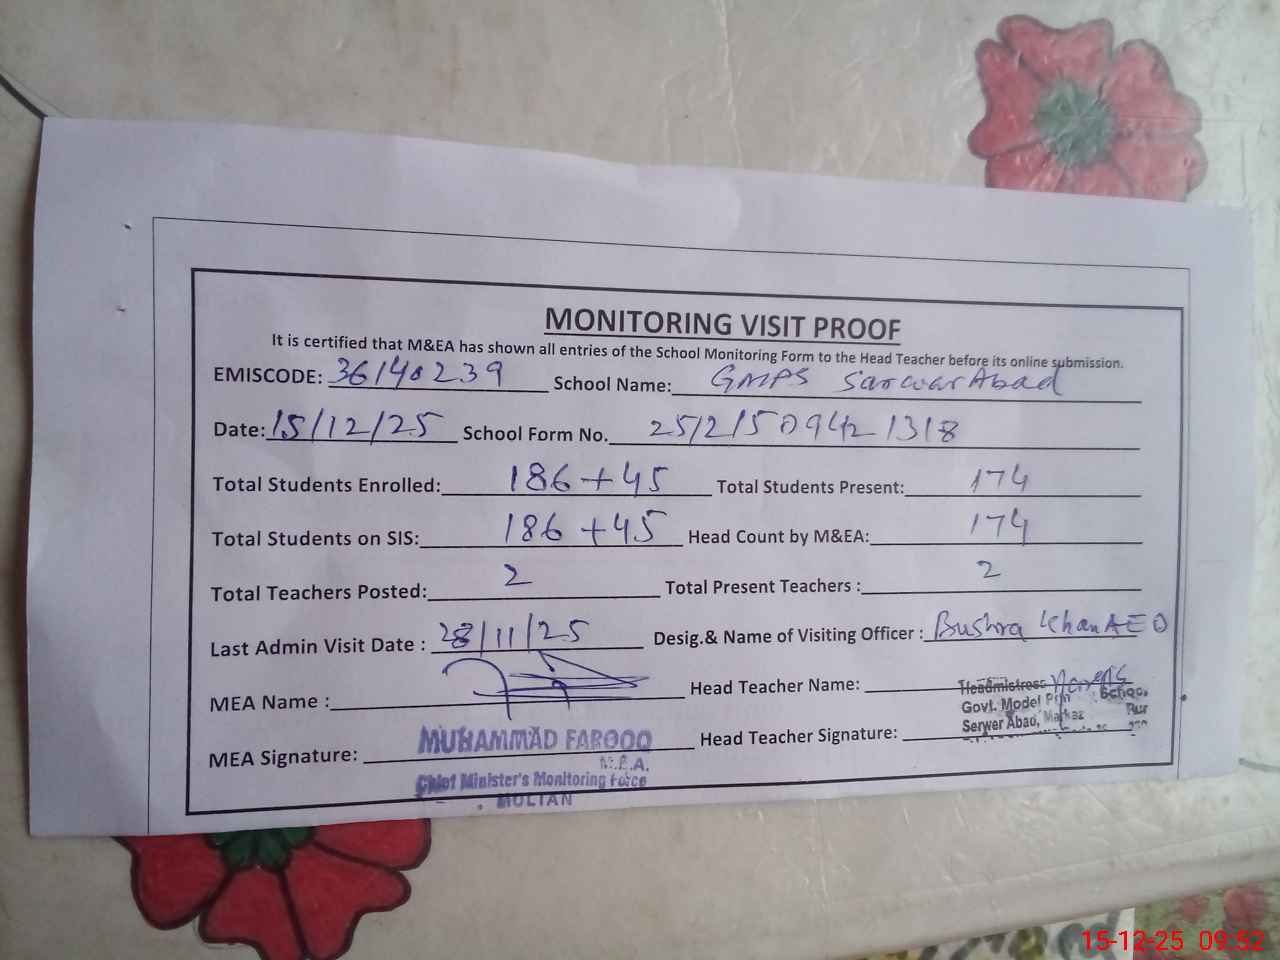 MONITORING VISIT PROOF
It is certified that M&EA has shown all entries of the School Monitoring Form to the Head Teacher before its online submission.
EMISCODE: 36140239 School Name: GMPS Sarwar Abad
Date: 15/12/25 School Form No. 251215094421318
Total Students Enrolled: 186+45 Total Students Present: 174
Total Students on SIS: 186+45 Head Count by M&EA: 174
Total Teachers Posted: 2 Total Present Teachers : 2
Last Admin Visit Date : 28/11/25 Desig.& Name of Visiting Officer : Bushra Khan AEO
MEA Name : Head Teacher Name:
Headmistress
Govt. Model School
Serwer Abad, Markaz
MEA Signature: Head Teacher Signature:
MUHAMMAD FAROOQ
M.E.A.
Chief Minister's Monitoring Force
MULTAN
15-12-25 09:52